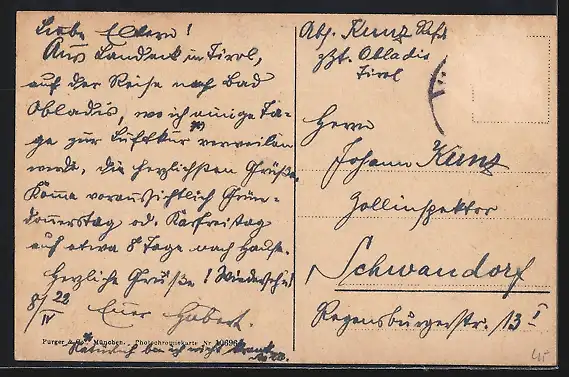 Liebe Eltern!
Aus Landeck in Tirol,
auf der Reise nach Bad
Obladis, wo ich einige Ta-
ge zur Luftkur *) verweilen
werde, die herzlichsten Grüße.
Komme voraussichtlich Grün-
donnerstag od. Karfreitag
auf etwa 8 Tage nach Hause.
Herzliche Grüße! Wiedersehn!
8/IV 22 Euer Hubert.
Purger & Co., München. Photochromiekarte Nr. 10696
*) Natürlich bin ich nicht krank
Abs. Kunz
zzt. Obladis
Tirol
Herrn
Johann Kunz
Zollinspektor
Schwandorf
Regensburgerstr. 13 I